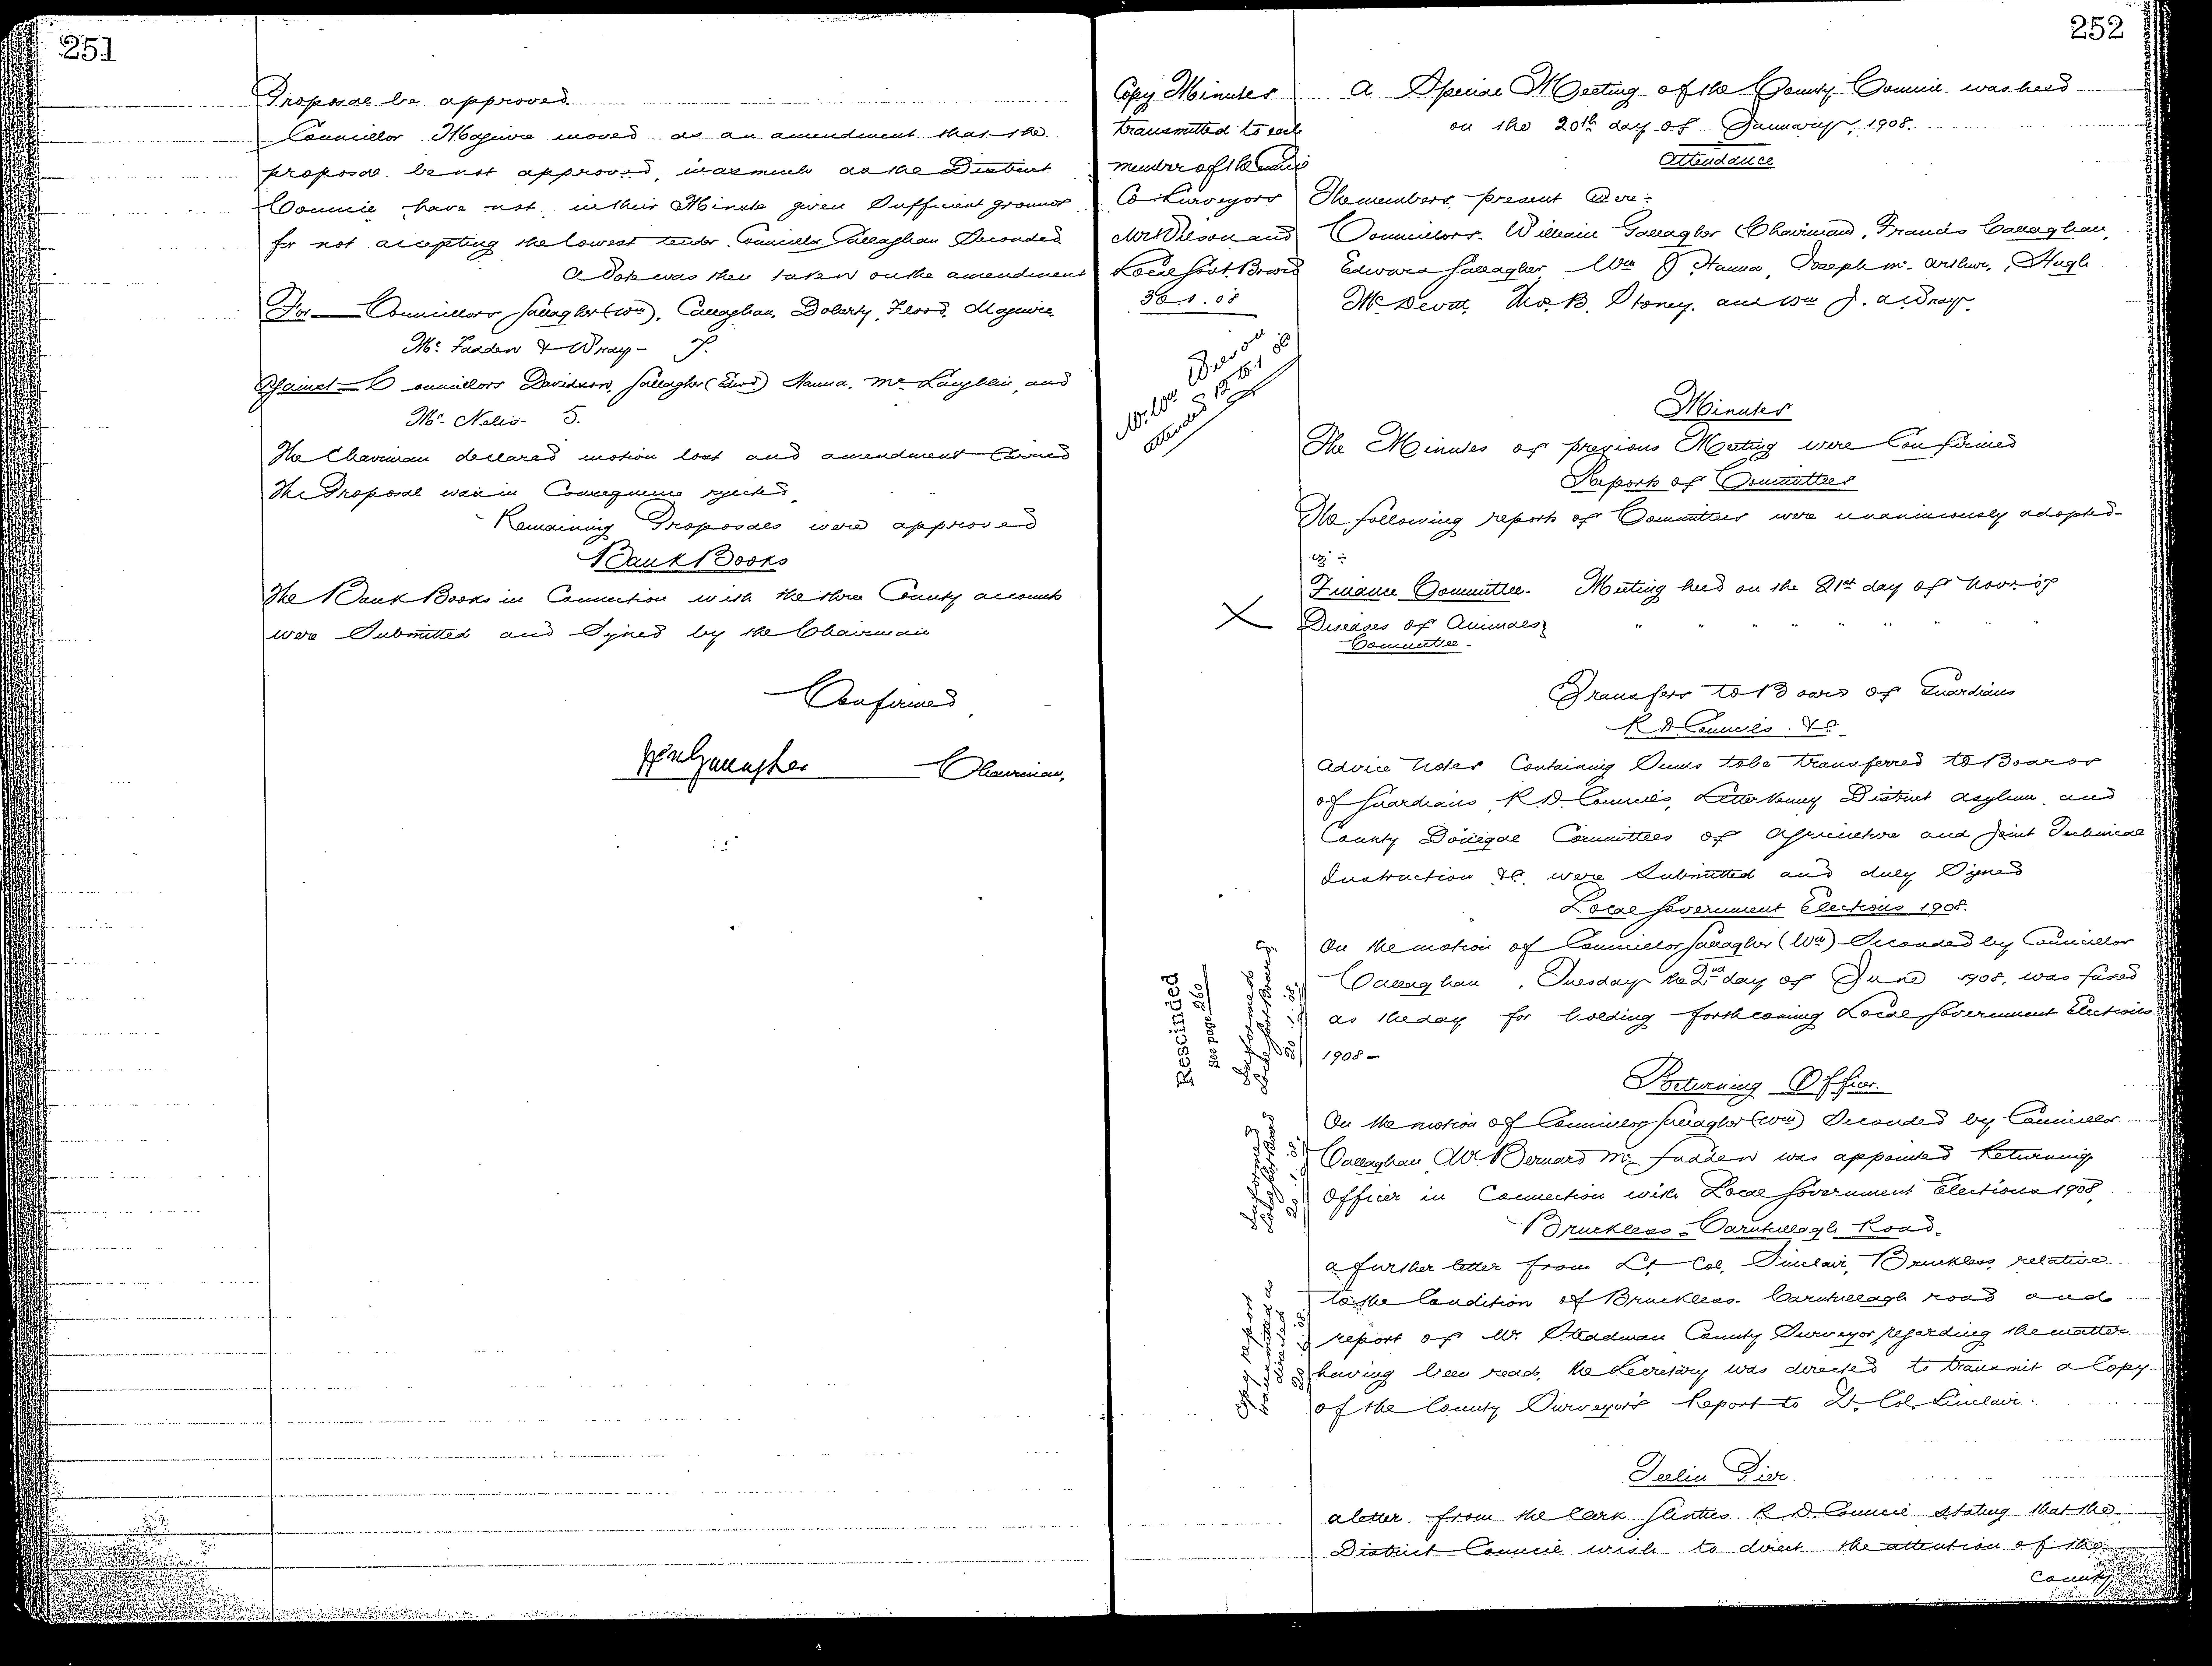 251
Proposal be approved
Councillor Maguire moved as an amendment that the
proposal be not approved, inasmuch as the District
Council have not in their Minute given Sufficient grounds
for not accepting the lowest tender. Councillor Callaghan Seconded.
A Vote was then taken on the amendment
For — Councillors Gallagher (Wm), Callaghan, Doherty, Flood, Maguire,
Mc. Fadden & Wray - 7.
Against — Councillors Davidson, Gallagher (Edwd) Hanna, Mc Laughlin, and
Mc. Nelis - 5.
The Chairman declared motion lost and amendment Carried
The Proposal was in Consequence rejected.
Remaining Proposals were approved
Bank Books
The Bank Books in Connection with the three County accounts
were Submitted and Signed by the Chairman
Confirmed,
Wm Gallagher Chairman,
252
Copy Minutes
transmitted to each
member of the Council
Co. Surveyors
Mr Wilson and
Local Govt. Board
30.1.08
Mr. Wm Wilson
attended
A Special Meeting of the County Council was held
on the 20th day of January, 1908.
Attendance
The members present were:
Councillors. William Gallagher (Chairman), Francis Callaghan,
Edward Gallagher, Wm J Hanna, Joseph Mc. Arthur, Hugh
Mc Devitt, Thos. B. Stoney, and Wm J. A. Wray.
Minutes
The Minutes of previous Meeting were Confirmed
Reports of Committees
The following reports of Committees were unanimously adopted -
viz :-
Finance Committee. Meeting held on the 21st day of Novr. 07
X Diseases of Animals } " " " " " " " "
Committee -
Transfers to Board of Guardians
R D. Councils &c.
Advice Notes Containing Sums to be transferred to Boards
of Guardians, R. D. Councils, Letterkenny District Asylum, and
County Donegal Committees of Agriculture and Joint Technical
Instruction &c. were Submitted and duly Signed
Local Government Elections 1908.
Rescinded
See page 260
Informed
Local Govt Board
20.1.08.
On the motion of Councillor Gallagher (Wm) Seconded by Councillor
Callaghan, Tuesday the 2nd day of June 1908, was fixed
as the day for holding forthcoming Local Government Elections
1908 -
Returning Officer.
Informed
Local Govt Board
20.1.08.
On the motion of Councillor Gallagher (Wm) Seconded by Councillor
Callaghan, Mr. Bernard Mc Fadden was appointed Returning
Officer in Connection with Local Government Elections 1908,
Bruckless - Carntullagh Road.
Copy report
transmitted as
directed
20.1.08.
A further letter from Lt Col. Sinclair, Bruckless, relative
to the Condition of Bruckless - Carntullagh road and
report of Mr. Steadman County Surveyor, regarding the matter
having been read, the Secretary was directed to transmit a Copy
of the County Surveyor's Report to Lt. Col. Sinclair.
Teelin Pier
A letter from the Clerk Glenties R D. Council stating that the
District Council wish to direct the attention of the
County